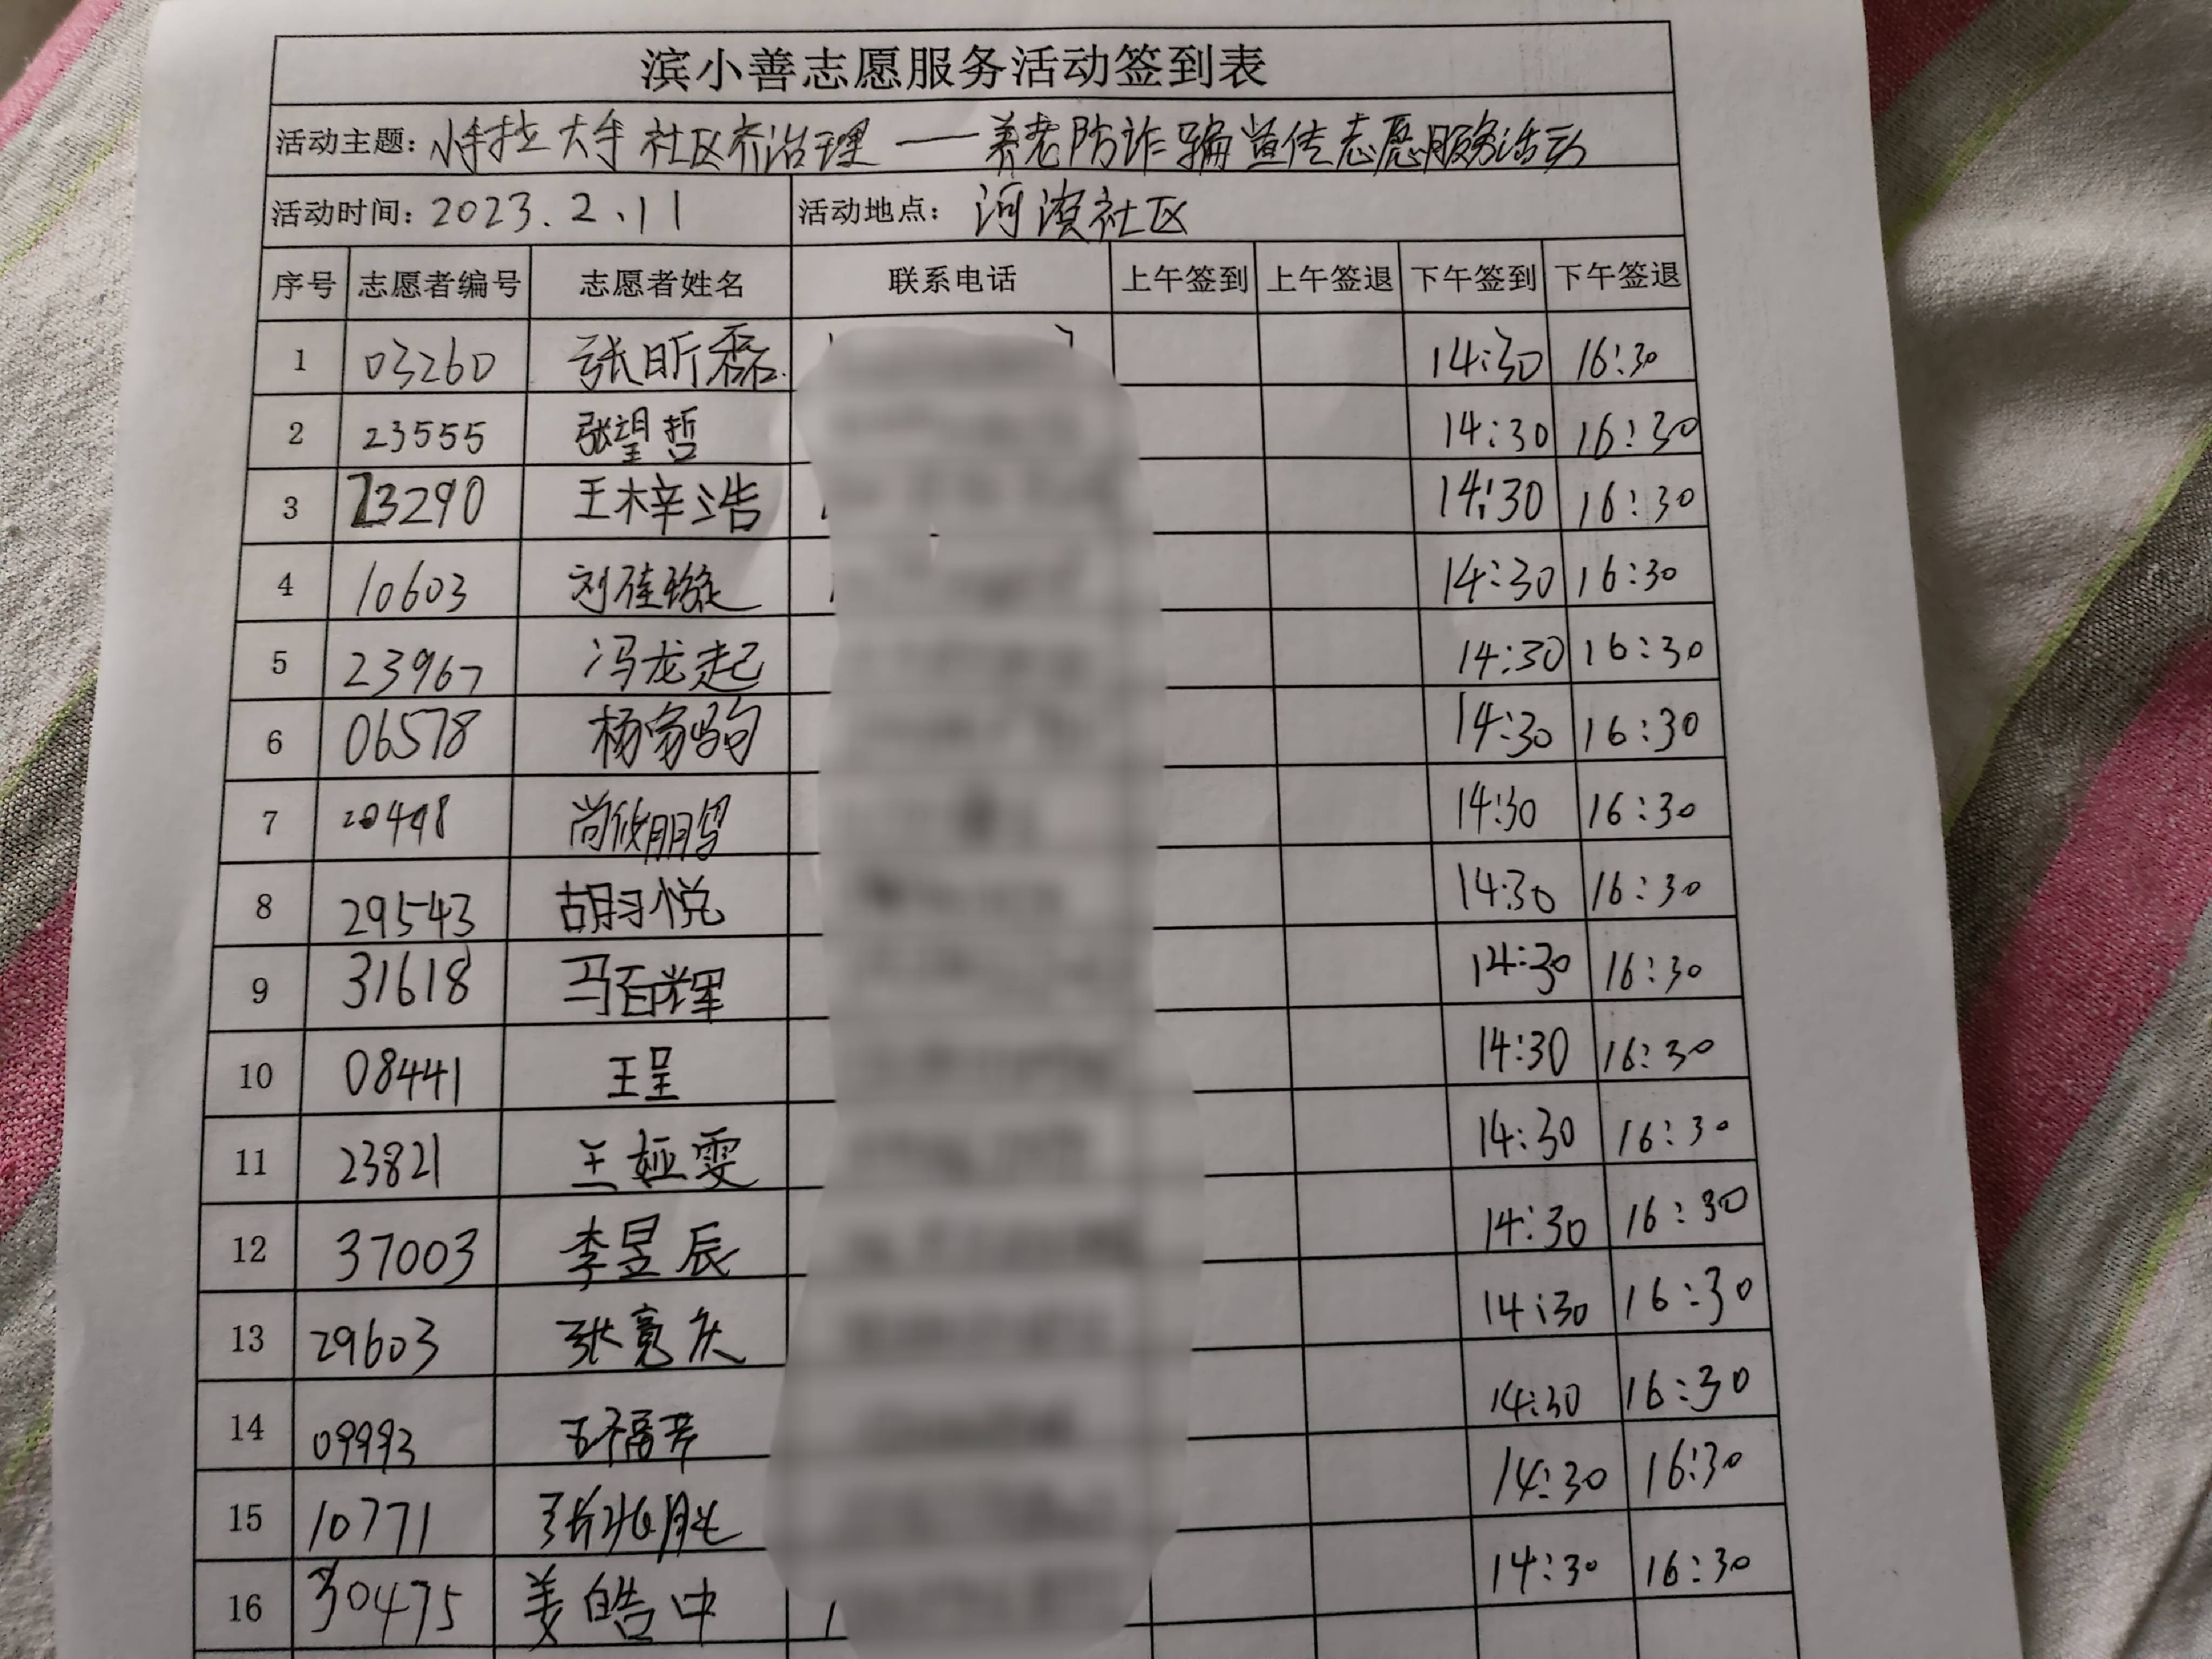 滨小善志愿服务活动签到表
活动主题：小手拉大手 社区齐治理——养老防诈骗宣传志愿服务活动
活动时间：2023.2.11 活动地点：河滨社区
序号 志愿者编号 志愿者姓名 联系电话 上午签到 上午签退 下午签到 下午签退
1 03260 张昕磊 14:30 16:30
2 23555 张望哲 14:30 16:30
3 23290 王梓浩 14:30 16:30
4 10603 刘佳璇 14:30 16:30
5 23967 冯龙起 14:30 16:30
6 06578 杨家驹 14:30 16:30
7 20448 14:30 16:30
8 29543 胡羽悦 14:30 16:30
9 31618 马百辉 14:30 16:30
10 08441 王呈 14:30 16:30
11 23821 王娅雯 14:30 16:30
12 37003 李昱辰 14:30 16:30
13 29603 张亮庆 14:30 16:30
14 09993 14:30 16:30
15 10771 张兆胜 14:30 16:30
16 30475 姜皓中 14:30 16:30